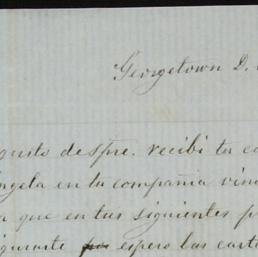 Georgetown D.
gusto despue. recibi tu ca
ngela en tu compañia vin
a que en tus siguientes p
igurarte espero las carta